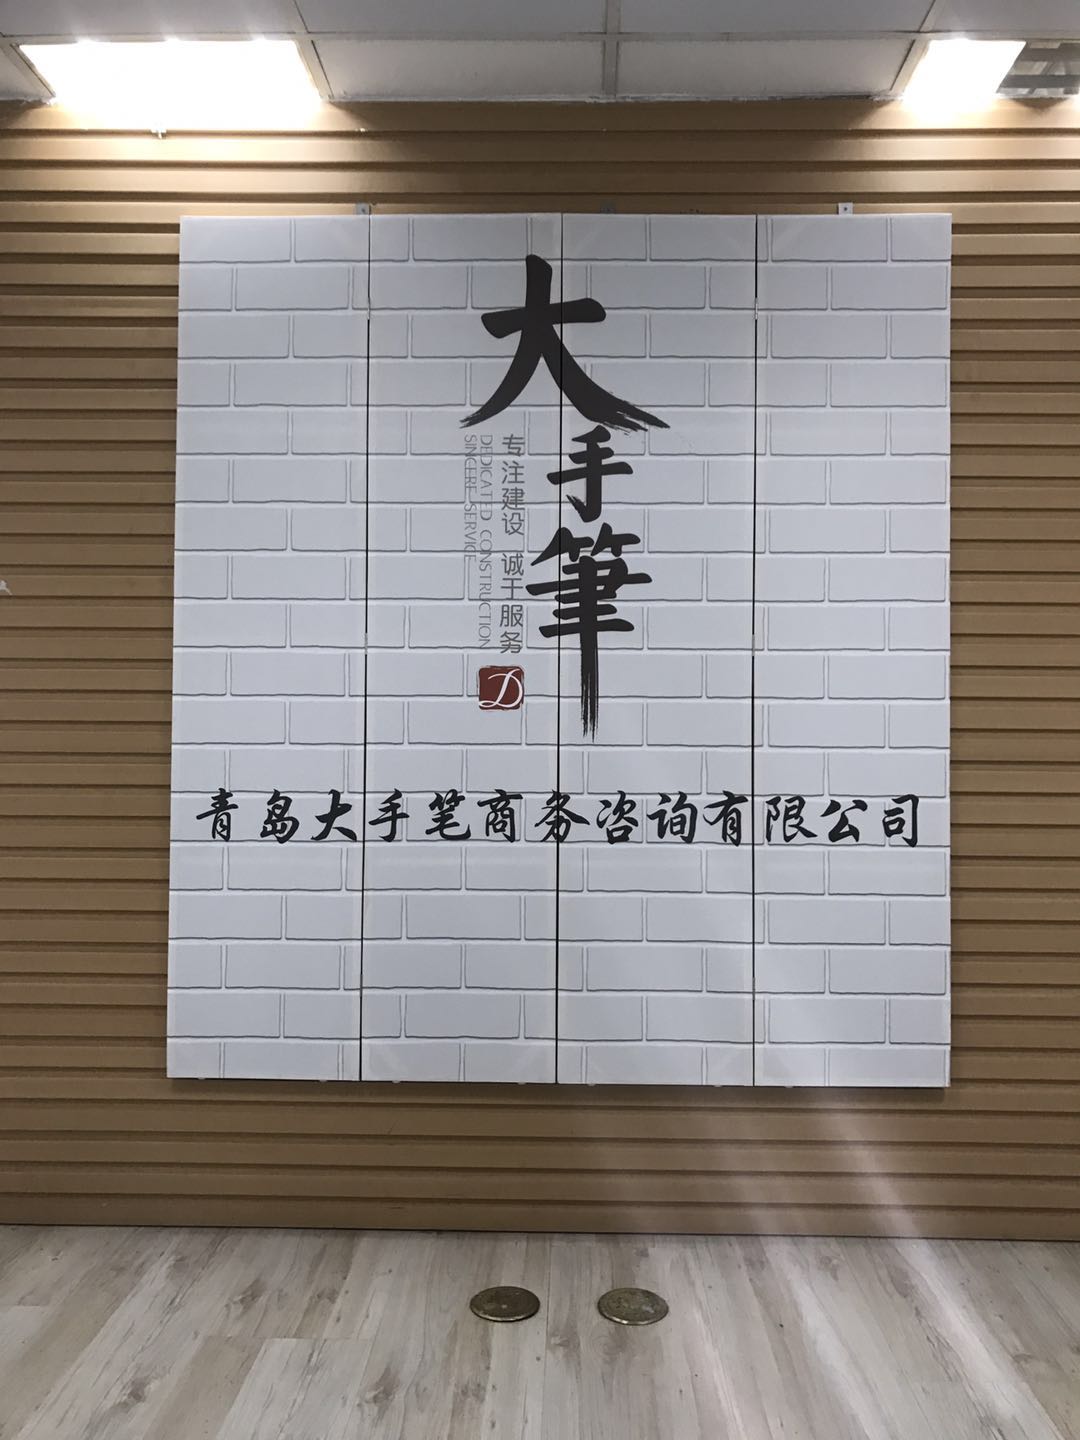 大手筆
专注建设 诚于服务
DEDICATED CONSTRUCTION
SINCERE SERVICE
D
青岛大手笔商务咨询有限公司